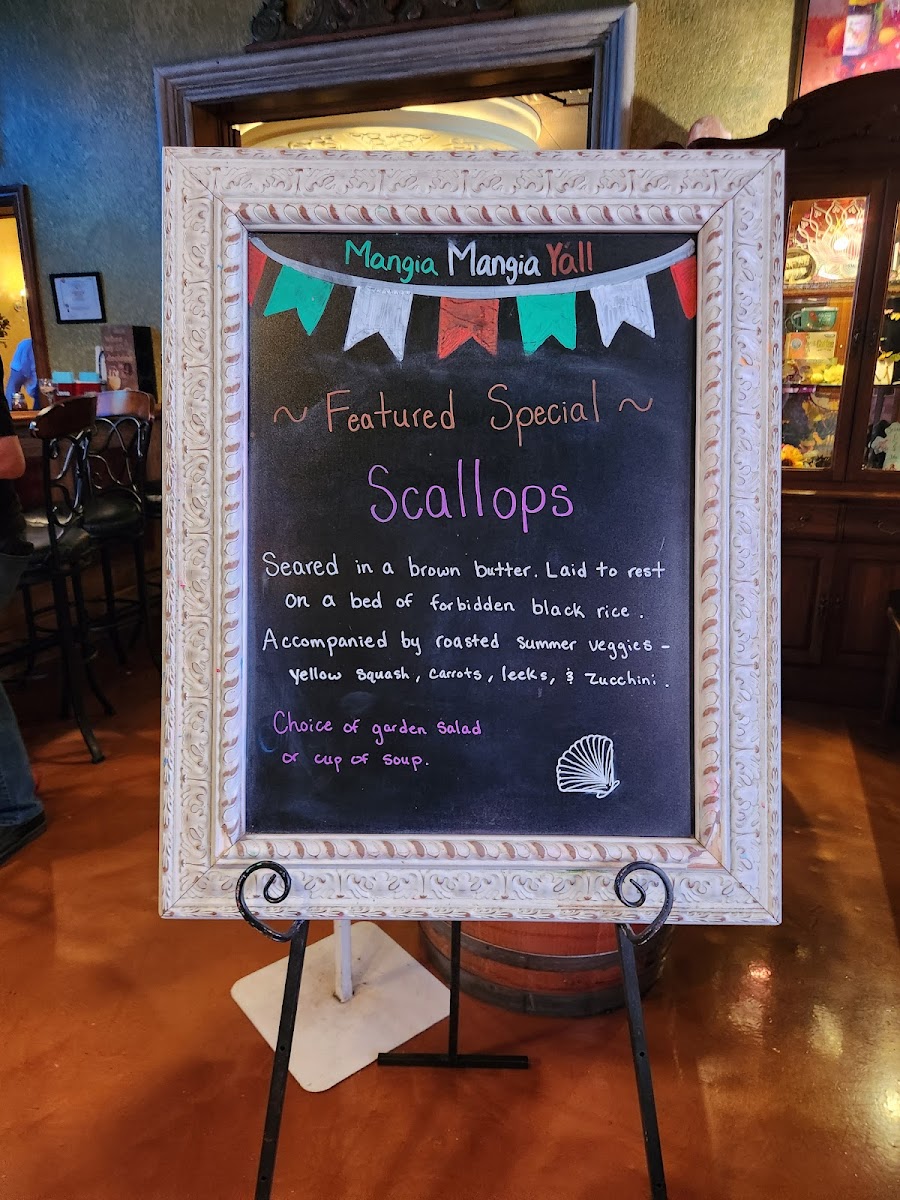 Mangia Mangia Y'all
~ Featured Special ~
Scallops
Seared in a brown butter. Laid to rest
on a bed of forbidden black rice.
Accompanied by roasted summer veggies -
yellow squash, carrots, leeks, & zucchini.
Choice of garden salad
or cup of soup.